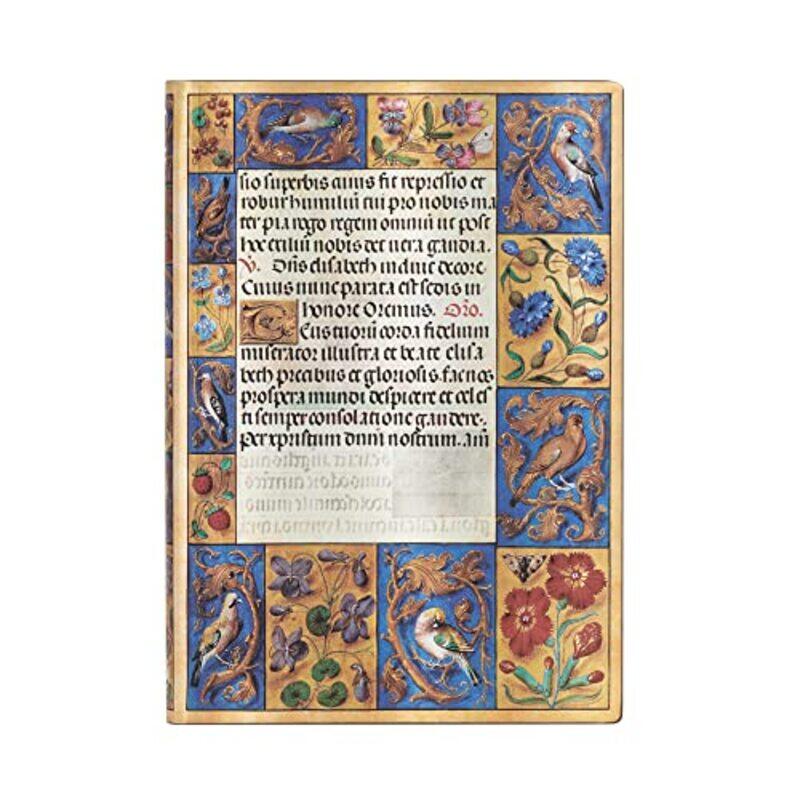 sio superbis cuius fit repressio et
robur humiliū cui pro nobis ma
ter pia rogo regem omniū ut post
hoc exiliū nobis det uera gaudia.
V. Ora elisabeth in diuie decore
Cuius nunc parata est sedis in
honore Oremus. Oro.
Eus tuorū corda fidelium
miserator illustra et beate elisa
beth precibus et gloriosis. fac nos
prospera mundi despicere et celes
ti semper consolatione gaudere.
Per xpristum dnm nostrum. am